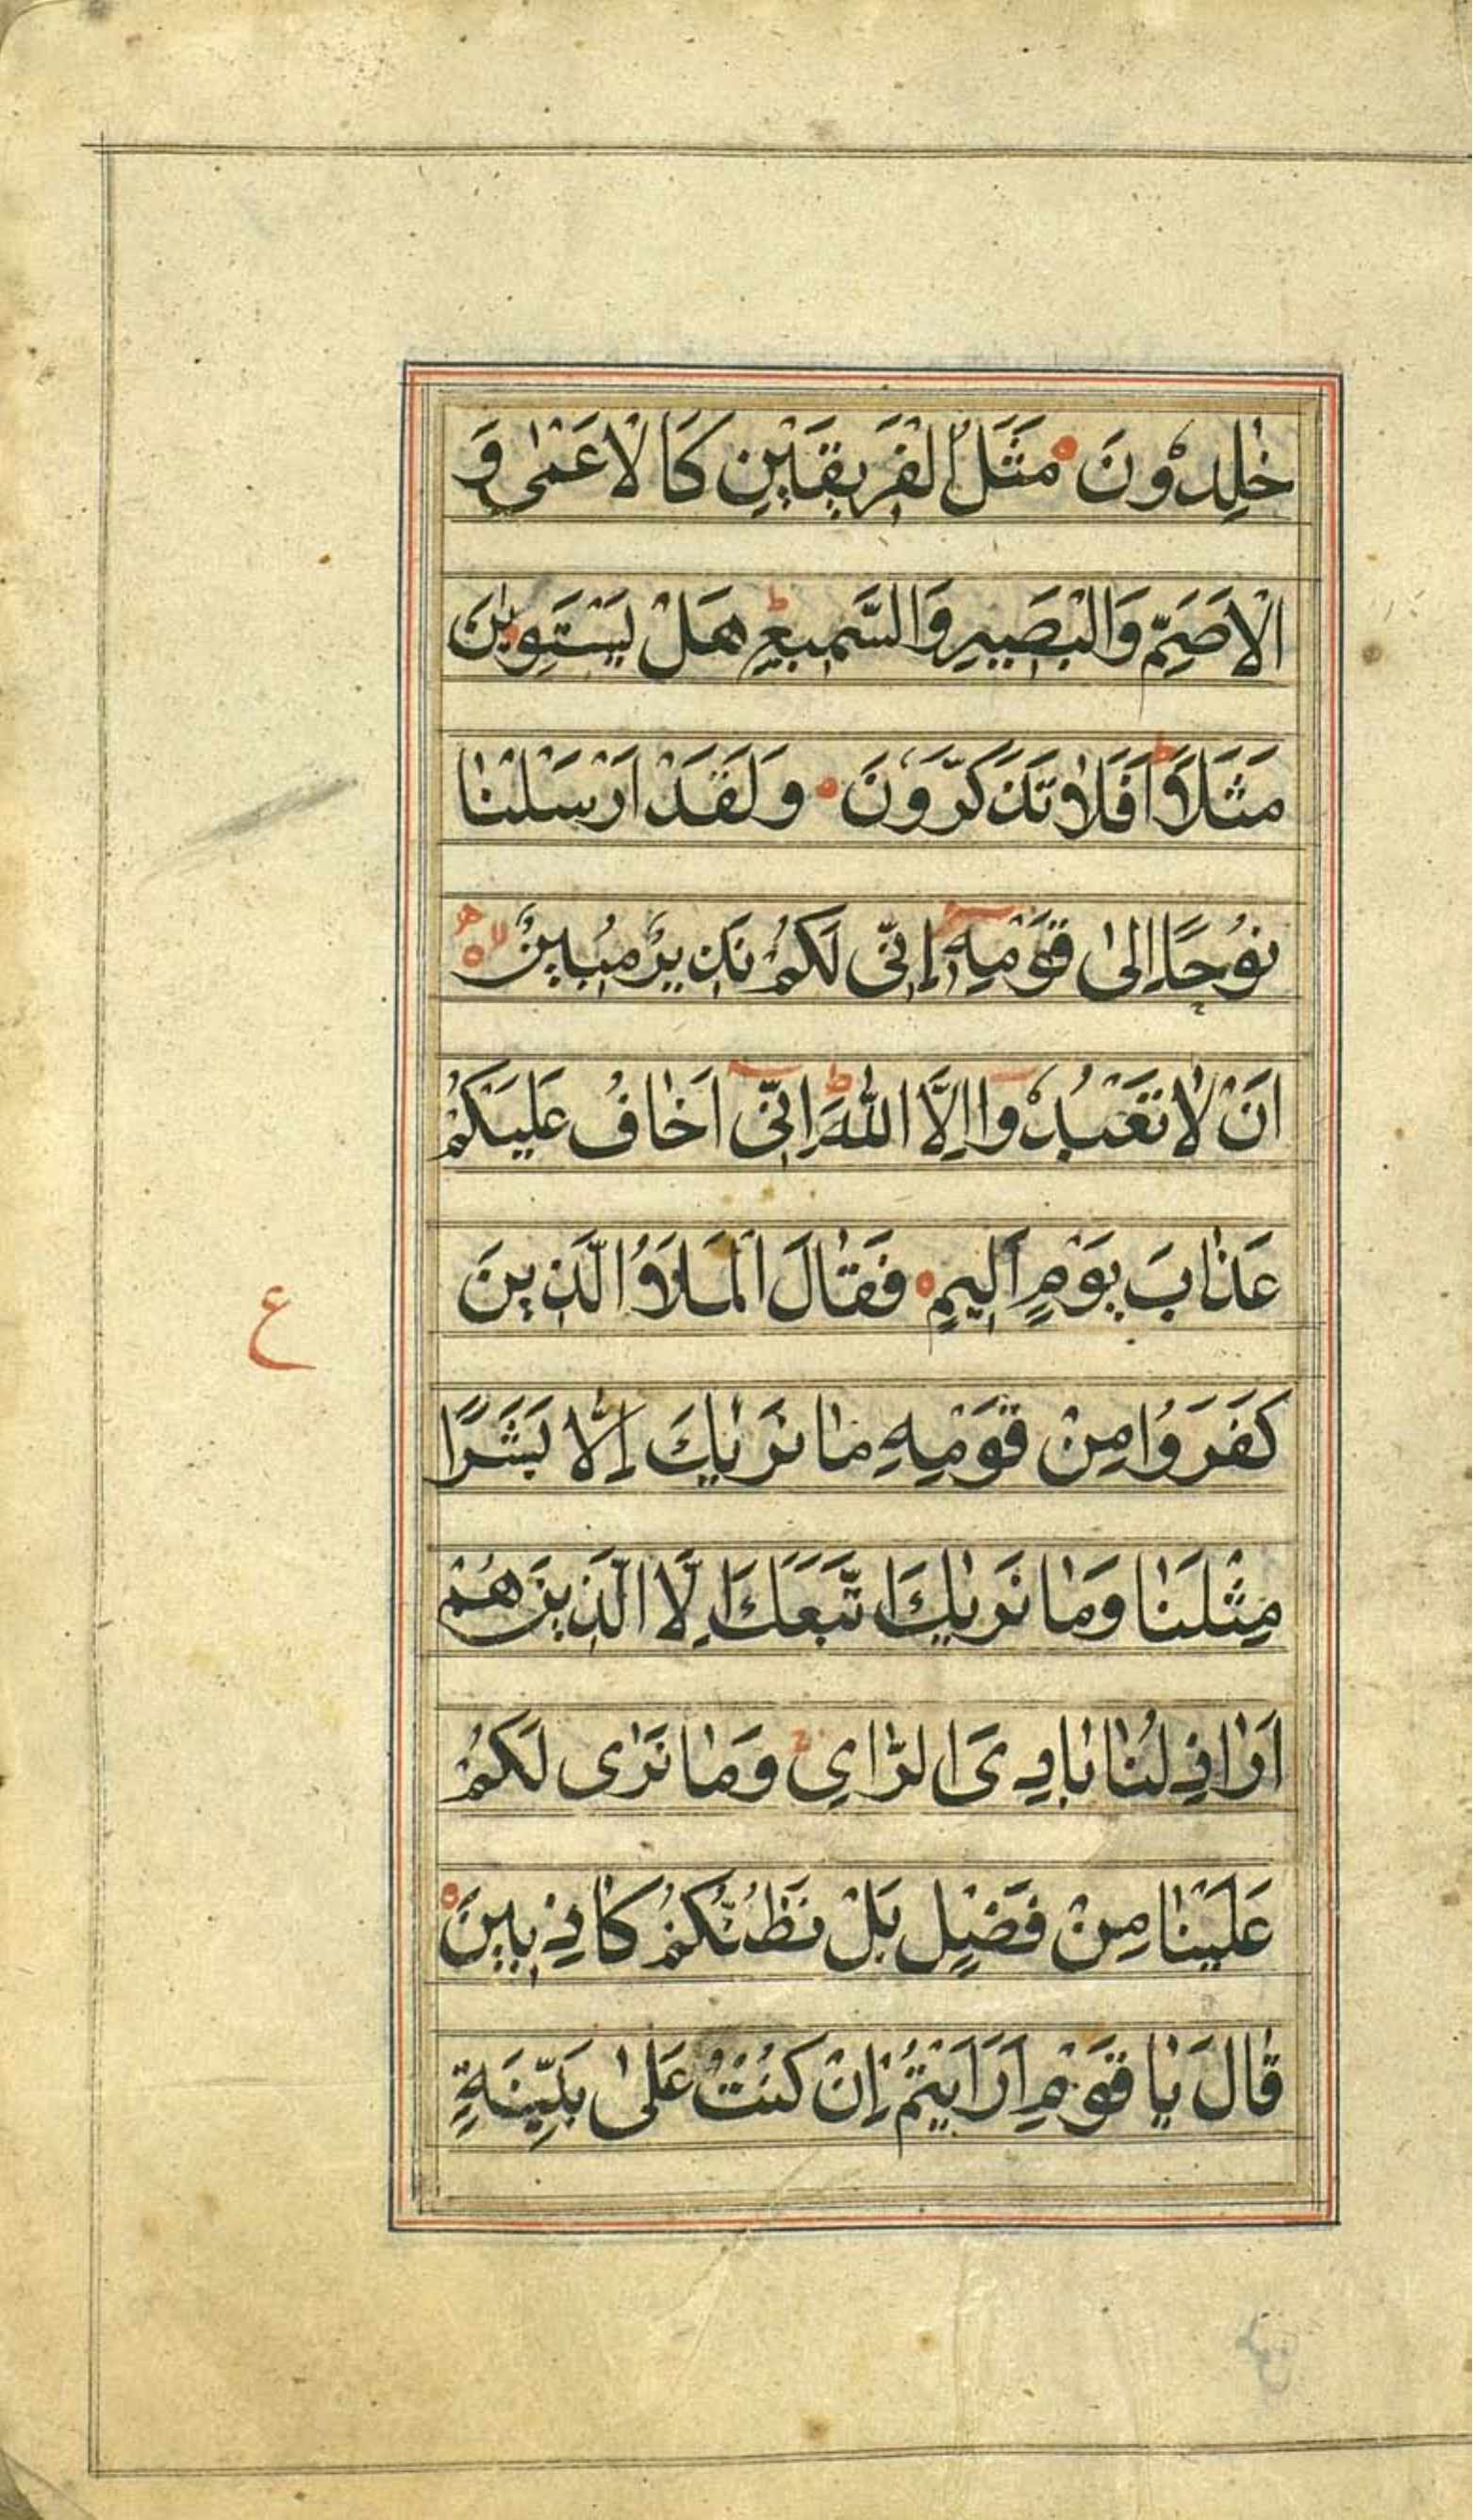 خٰلِدُوْنَ مَثَلُ الْفَرِيْقَيْنِ كَالْاَعْمٰى وَ
الْاَصَمِّ وَالْبَصِيْرِ وَالسَّمِيْعِ ط هَلْ يَسْتَوِيٰنِ
مَثَلًا ط اَفَلَا تَذَكَّرُوْنَ وَلَقَدْ اَرْسَلْنَا
نُوْحًا اِلٰى قَوْمِهٖ اِنِّىْ لَكُمْ نَذِيْرٌ مُّبِيْنٌ لا
اَنْ لَا تَعْبُدُوْا اِلَّا اللّٰهَ ط اِنِّىْ اَخَافُ عَلَيْكُمْ
عَذَابَ يَوْمٍ اَلِيْمٍ فَقَالَ الْمَلَاُ الَّذِيْنَ
ع
كَفَرُوْا مِنْ قَوْمِهٖ مَا نَرٰيكَ اِلَّا بَشَرًا
مِثْلَنَا وَمَا نَرٰيكَ اتَّبَعَكَ اِلَّا الَّذِيْنَ هُمْ
اَرَاذِلُنَا بَادِىَ الرَّاْىِ وَمَا نَرٰى لَكُمْ
عَلَيْنَا مِنْ فَضْلٍ بَلْ نَظُنُّكُمْ كَاذِبِيْنَ
قَالَ يَا قَوْمِ اَرَاَيْتُمْ اِنْ كُنْتُ عَلٰى بَيِّنَةٍ